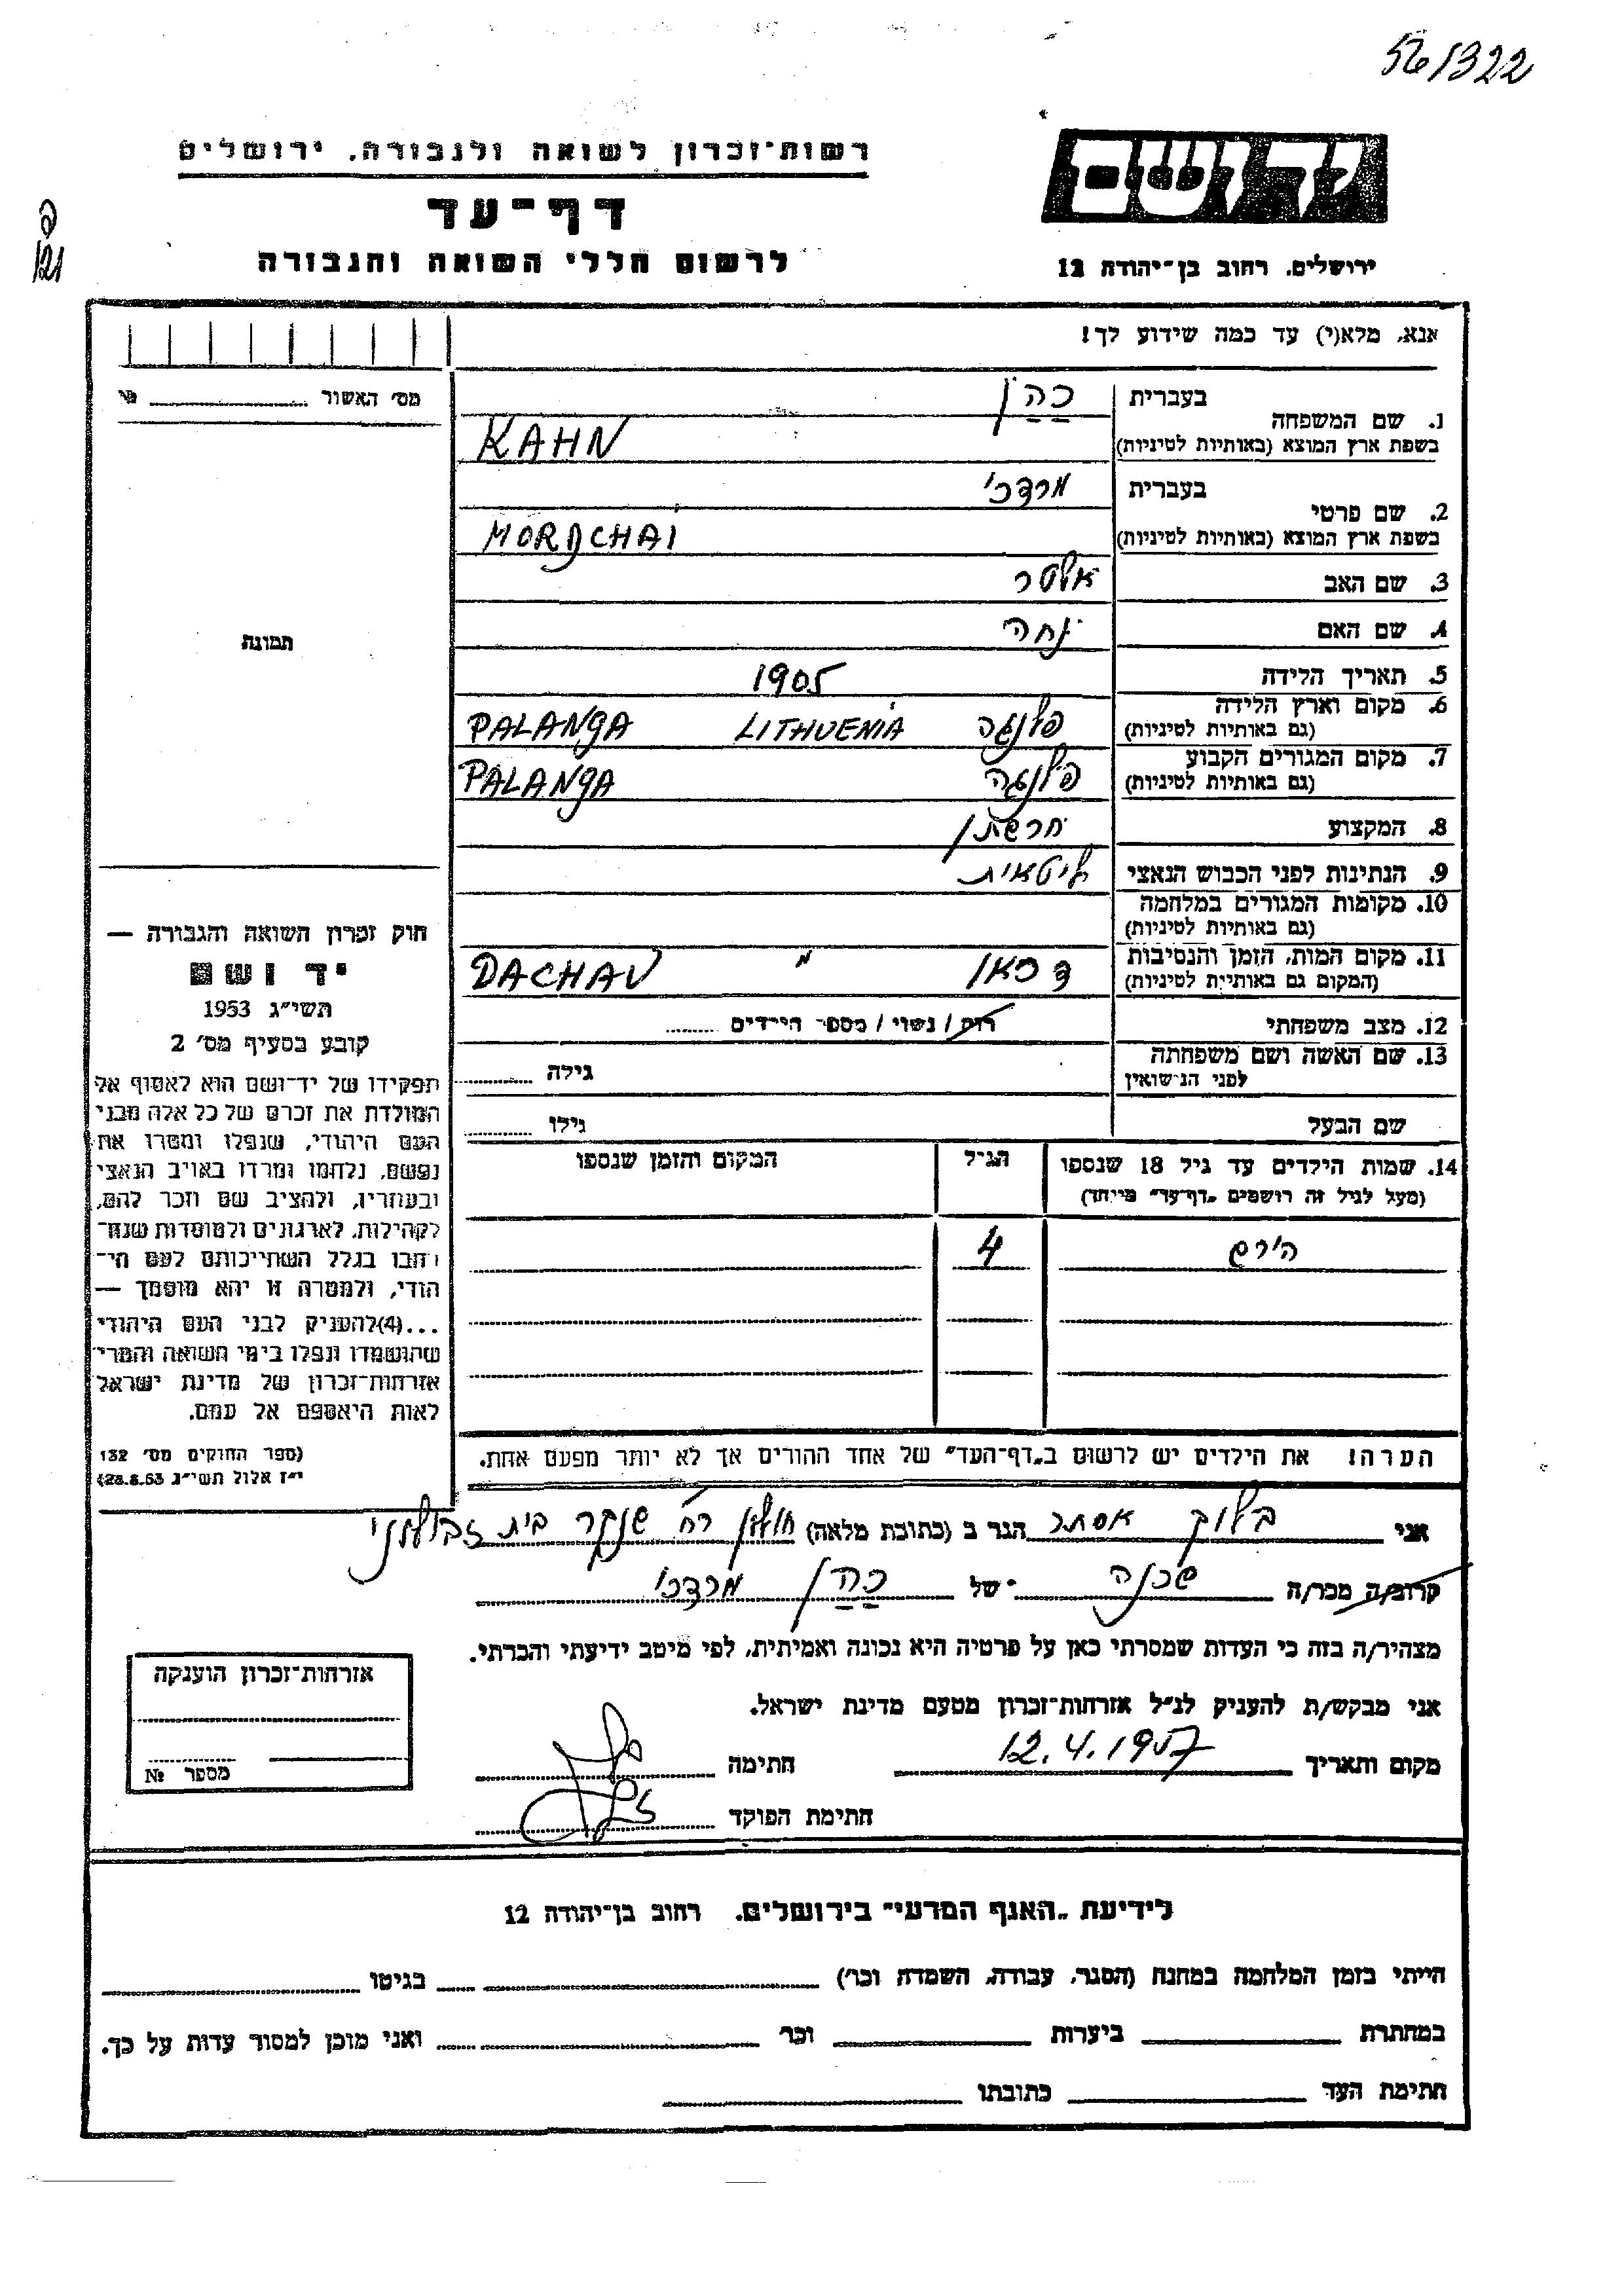 56/322
רשות-זכרון לשואה ולגבורה. ירושלים
יד ושם
דף-עד
לרשום חללי השואה והגבורה
ירושלים, רחוב בן-יהודה 12
121
אנא, מלא(י) עד כמה שידוע לך!
מס׳ האשור №
1. שם המשפחה
בעברית כהן
בשפת ארץ המוצא (באותיות לטיניות) KAHN
2. שם פרטי
בעברית מרדכי
בשפת ארץ המוצא (באותיות לטיניות) MORDCHAI
3. שם האב אלטר
4. שם האם נחה
תמונה
5. תאריך הלידה 1905
6. מקום וארץ הלידה פלנגה LITHUENIA PALANGA
(גם באותיות לטיניות)
7. מקום המגורים הקבוע פלנגה PALANGA
(גם באותיות לטיניות)
8. המקצוע חרשתן
9. הנתינות לפני הכבוש הנאצי ליטאית
10. מקומות המגורים במלחמה
(גם באותיות לטיניות)
11. מקום המות, הזמן והנסיבות דכאו " DACHAU
(המקום גם באותיית לטיניות)
12. מצב משפחתי רוק / נשוי / מספר הילדים
13. שם האשה ושם משפחתה גילה
לפני הנישואין
שם הבעל גילו
14. שמות הילדים עד גיל 18 שנספו הגיל המקום והזמן שנספו
(מעל לגיל זה רושמים „דף-עד" מייחד)
הירש 4
חוק זכרון השואה והגבורה —
יד ושם
תשי״ג 1953
קובע בסעיף מס׳ 2
תפקידו של יד-ושם הוא לאסוף אל
המולדת את זכרם של כל אלה מבני
העם היהודי, שנפלו ומסרו את
נפשם, נלחמו ומרדו באויב הנאצי
ובעוזריו, ולהציב שם וזכר להם,
לקהילות, לארגונים ולמוסדות שנח־
רבו בגלל השתייכותם לעם הי־
הודי, ולמטרה זו יהא מוסמך —
...(4)להעניק לבני העם היהודי
שהושמדו ונפלו בימי השואה והמרי
אזרחות-זכרון של מדינת ישראל
לאות היאספם אל עמם.
(ספר החוקים מס׳ 132
י״ז אלול תשי״ג 28.8.53)
הערה! את הילדים יש לרשום ב„דף-העד" של אחד ההורים אך לא יותר מפעם אחת.
אני בלוך אסתר הגר ב (כתובת מלאה) חולון רח׳ שנקר בית זבולוני
קרוב/ה מכר/ה שכנה של כהן מרדכי
מצהיר/ה בזה כי העדות שמסרתי כאן על פרטיה היא נכונה ואמיתית, לפי מיטב ידיעתי והכרתי.
אני מבקש/ת להעניק לנ״ל אזרחות-זכרון מטעם מדינת ישראל.
מקום ותאריך 12.4.1957 חתימה
חתימת הפוקד
אזרחות-זכרון הוענקה
מספר №
לידיעת „האגף המדעי" בירושלים. רחוב בן-יהודה 12
הייתי בזמן המלחמה במחנה (הסגר, עבודה, השמדה וכו׳) בגיטו
במחתרת ביערות וכו׳ ואני מוכן למסור עדות על כך.
חתימת העד כתובתו